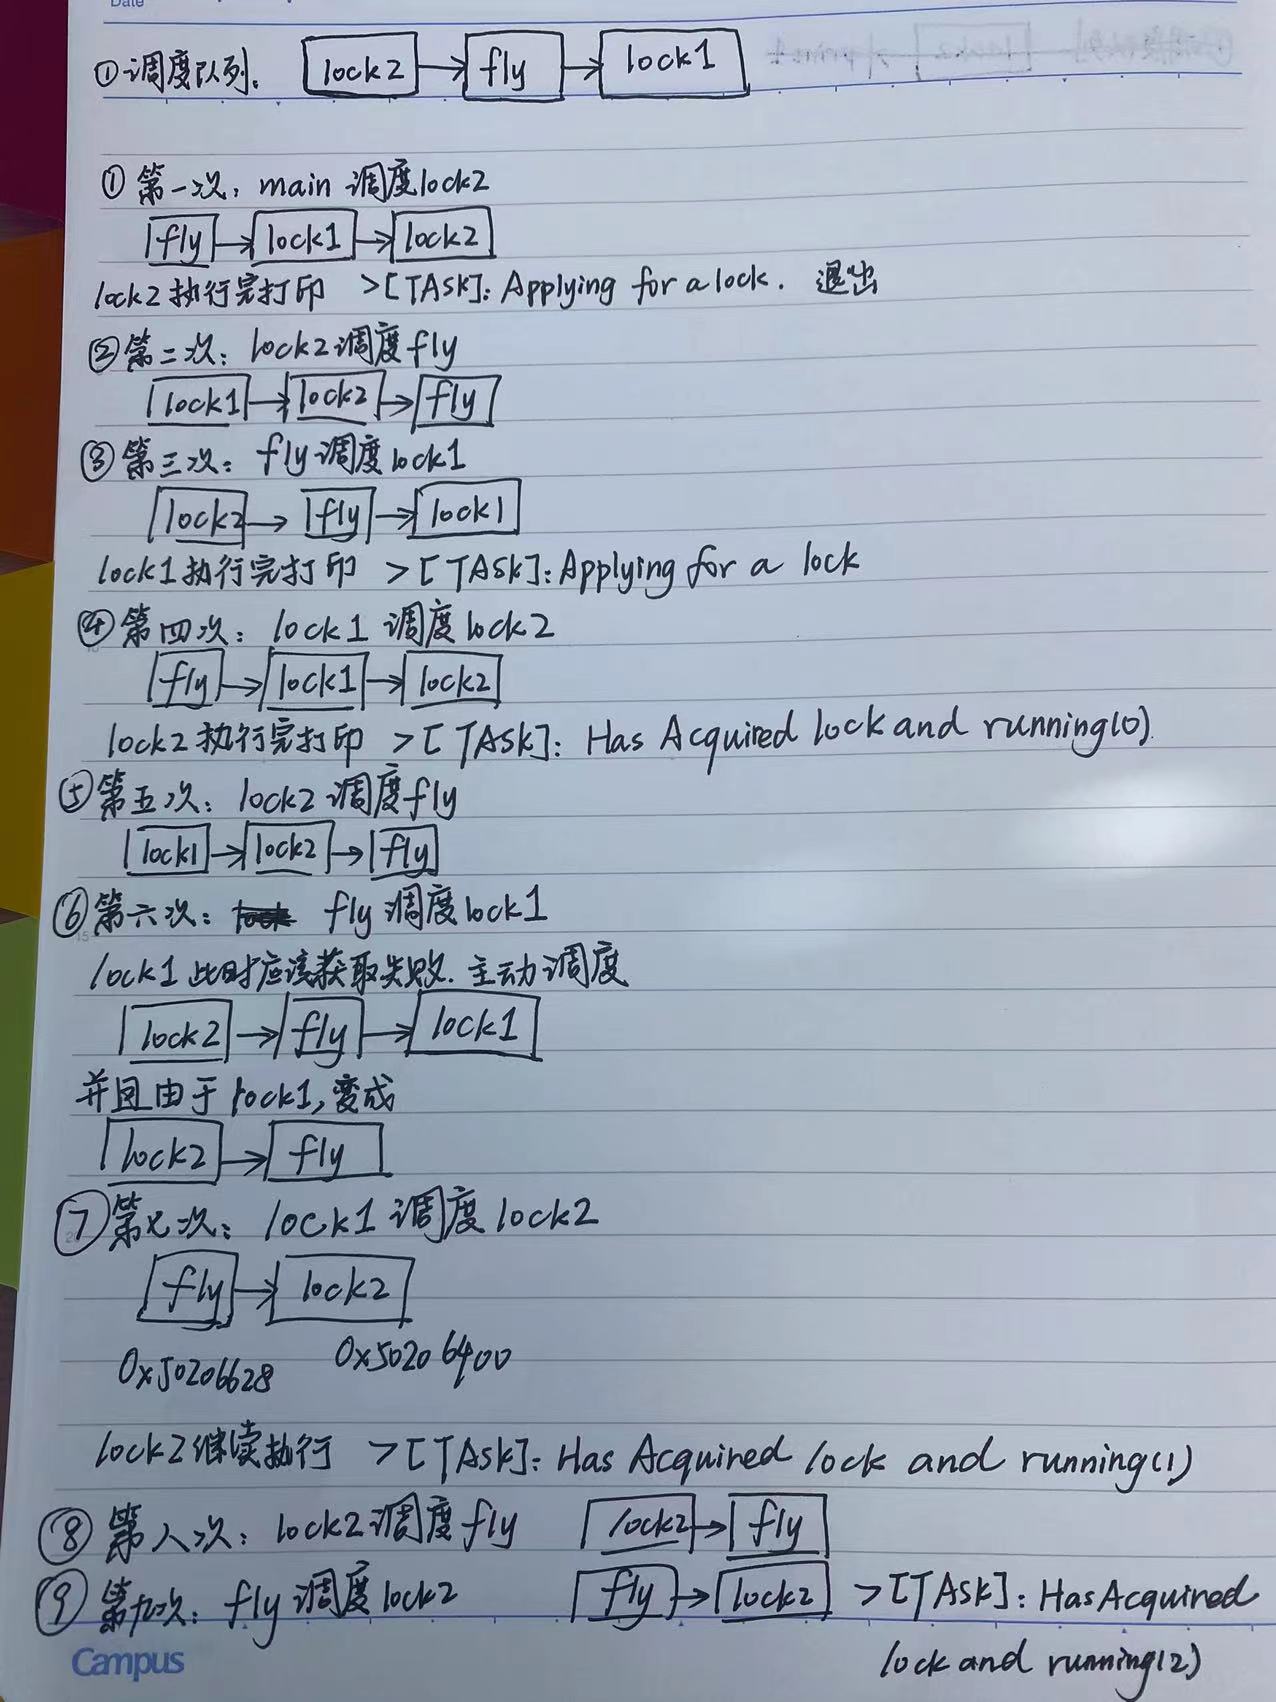 Date
①调度队列: lock2 → fly → lock1
①第一次: main 调度lock2
fly → lock1 → lock2
lock2执行完打印 >[TASK]: Applying for a lock. 退出
②第二次: lock2调度fly
lock1 → lock2 → fly
③第三次: fly调度lock1
lock2 → fly → lock1
lock1执行完打印 >[TASK]: Applying for a lock
④第四次: lock1 调度lock2
fly → lock1 → lock2
lock2执行完打印 >[TASK]: Has Acquired lock and running(0).
⑤第五次: lock2 调度fly
lock1 → lock2 → fly
⑥第六次: fly调度lock1
lock1此时应该获取失败. 主动调度
lock2 → fly → lock1
并且由于lock1,变成
lock2 → fly
⑦第七次: lock1 调度lock2
fly → lock2
0x50206628 0x50206400
lock2继续执行 >[TASK]: Has Acquired lock and running(1)
⑧第八次: lock2调度fly lock2 → fly
⑨第九次: fly调度lock2 fly → lock2 >[TASK]: Has Acquired
lock and running(2)
Campus